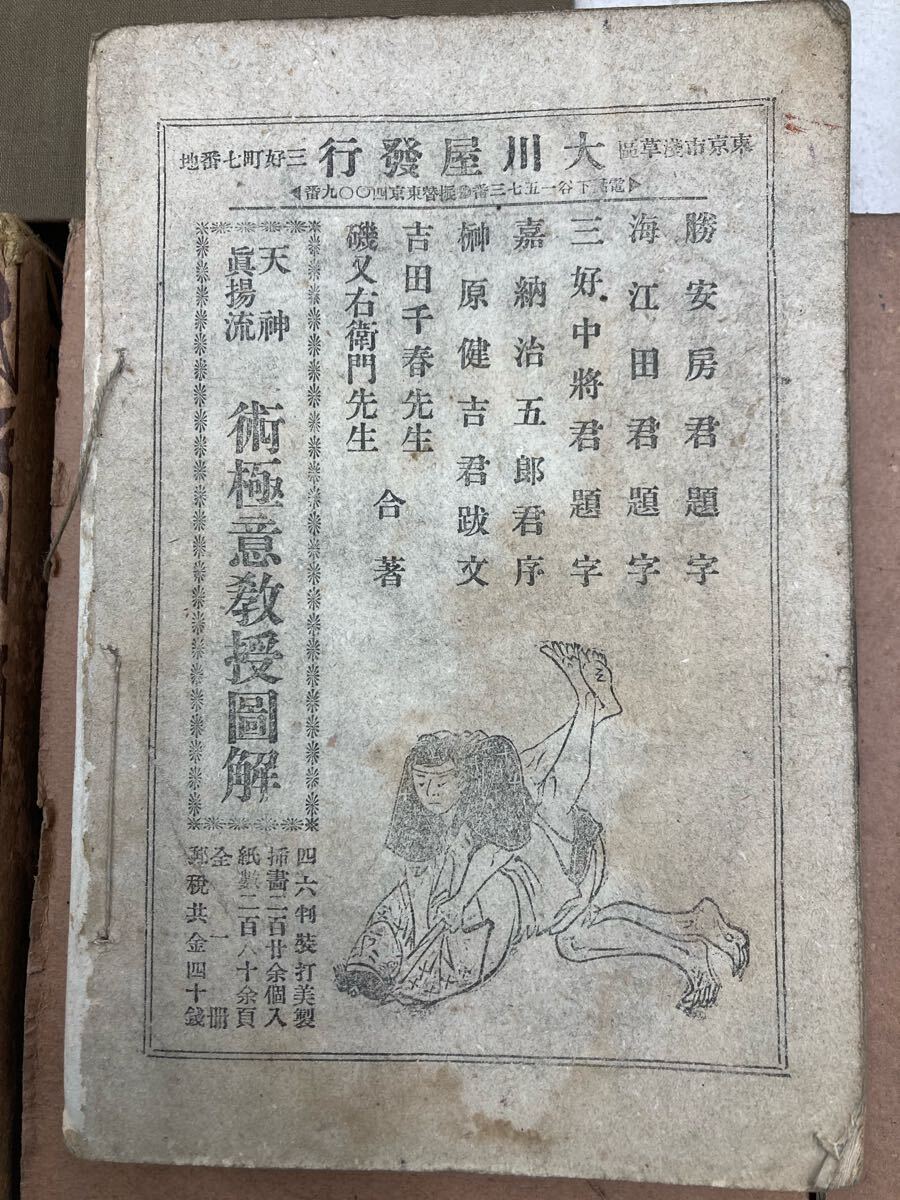 東京市淺草區 大川屋發行 三好町七番地
電話下谷一五七三番 振替東京四〇〇九番
勝安房君題字
海江田君題字
三好中將君題字
嘉納治五郎君序
榊原健吉君跋文
吉田千春先生
磯又右衛門先生
合著
天神
眞揚流
術極意敎授圖解
四六判裝打美製
挿畫二百廿余個入
紙數二百八十余頁
全一册
郵稅共金四十錢